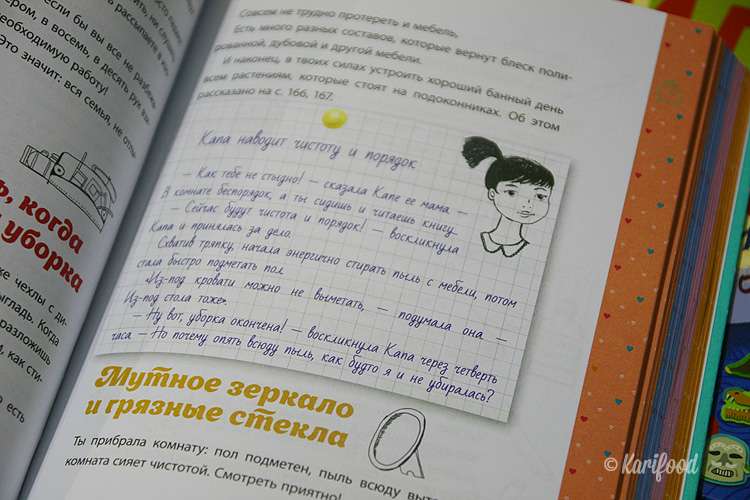 если бы вы все не разбе
ером, в восемь, в десять рук вза
необходимую работу!
Это значит: вся семья, не отлы
ь, когда
уборка
же чехлы с ди-
ыгладь. Когда
разложишь
м, как сти-
о есть
Совсем не трудно протереть и мебель.
Есть много разных составов, которые вернут блеск поли-
рованной, дубовой и другой мебели.
И наконец, в твоих силах устроить хороший банный день
всем растениям, которые стоят на подоконниках. Об этом
рассказано на с. 166, 167.
Капа наводит чистоту и порядок
— Как тебе не стыдно! — сказала Капе ее мама —
В комнате беспорядок, а ты сидишь и читаешь книгу.
— Сейчас будут чистота и порядок! — воскликнула
Капа и принялась за дело.
Схватив тряпку, начала энергично стирать пыль с мебели, потом
стала быстро подметать пол
«Из-под кровати можно не выметать, — подумала она —
Из-под стола тоже».
— Ну вот, уборка окончена! — воскликнула Капа через четверть
часа — Но почему опять всюду пыль, как будто я и не убиралась?
Мутное зеркало
и грязные стекла
Ты прибрала комнату: пол подметен, пыль всюду выте
комната сияет чистотой. Смотреть приятно!
© Karifood